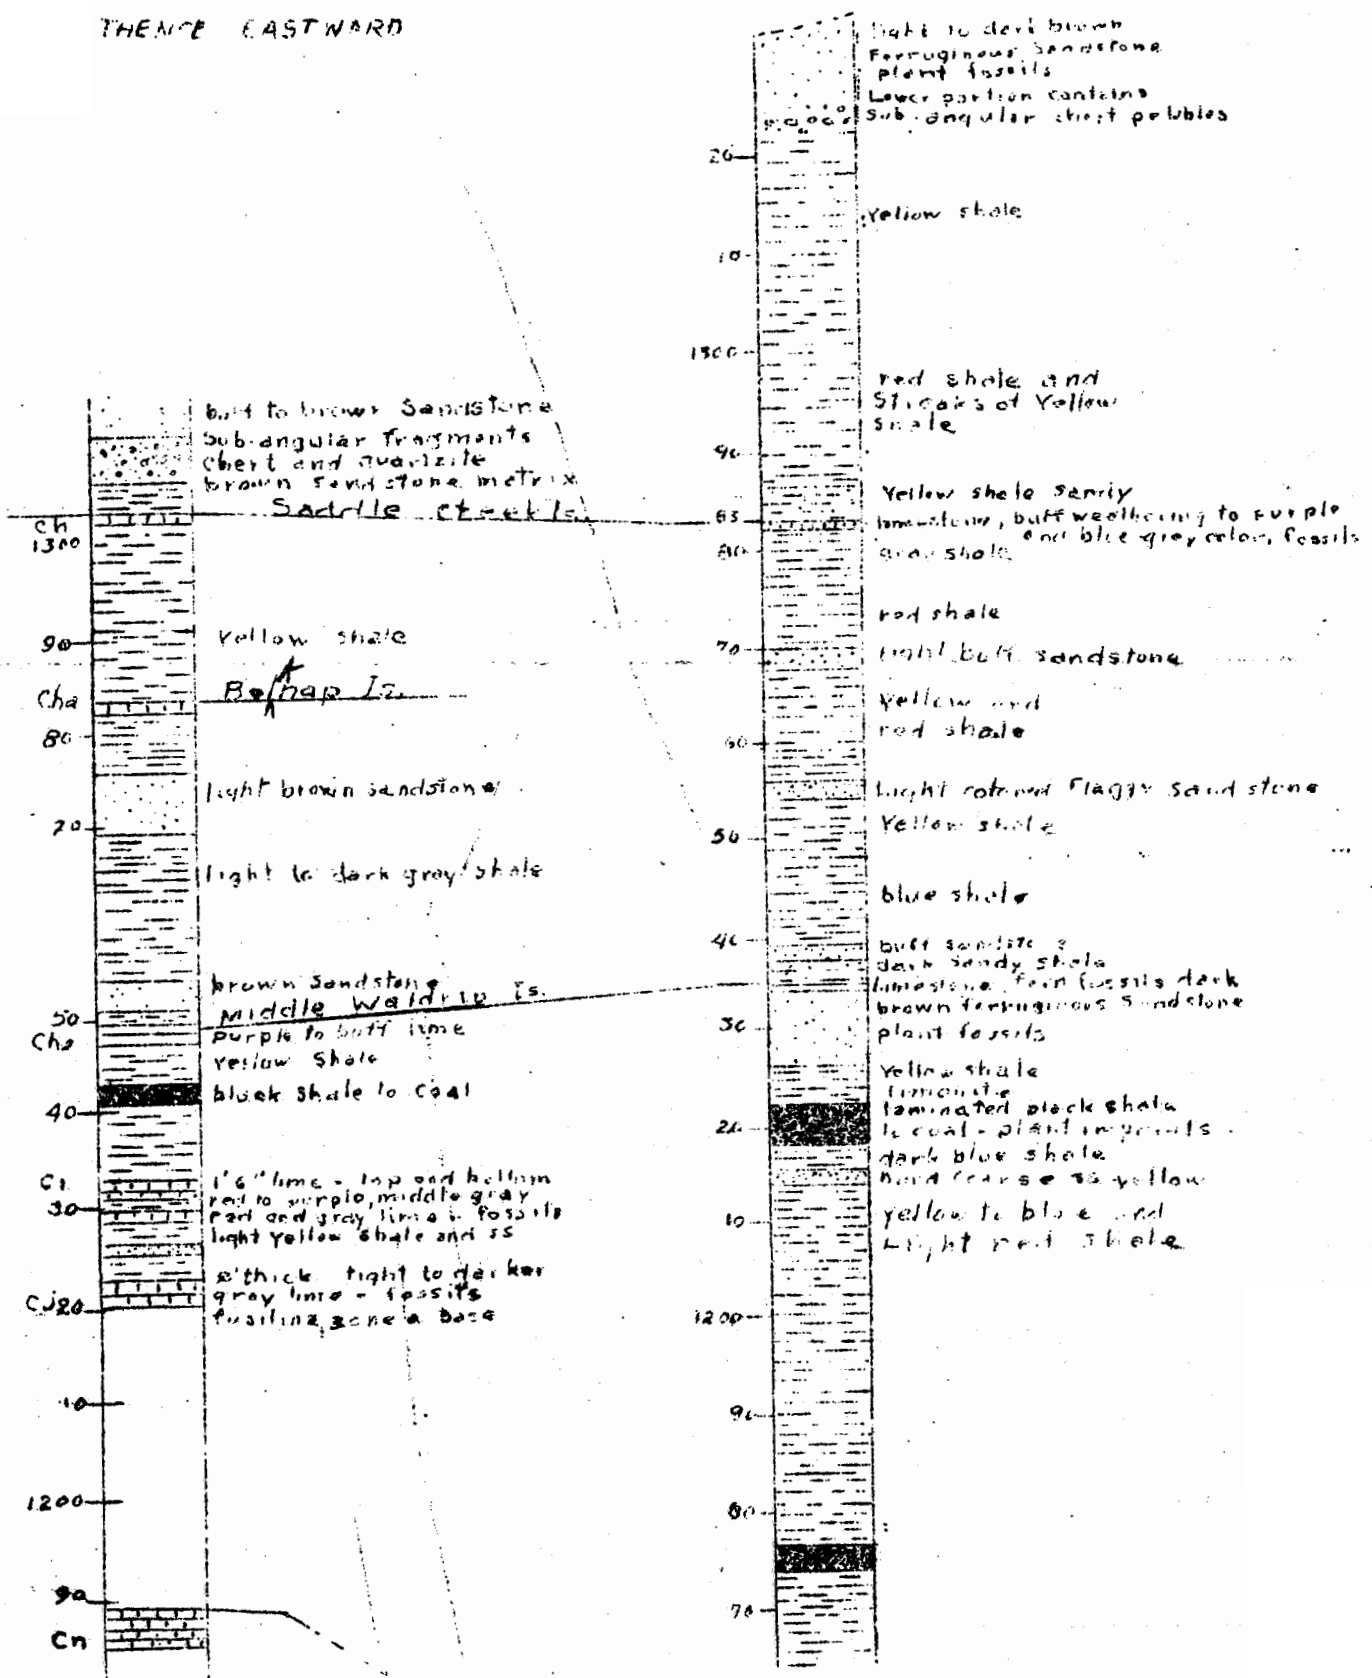 THENCE EASTWARD
buff to brown Sandstone
Sub-angular fragments
chert and quartzite
brown sandstone matrix
Saddle Creek ls.
Ch
1300
90
yellow shale
Belknap ls.
Cha
80
light brown sandstone
70
light to dark gray shale
brown sandstone
Middle Waldrip ls.
50
purple to buff lime
Yellow Shale
black shale to coal
40
1'6" lime - top and bottom
red to purple, middle gray
30
red and gray lime fossils
light yellow shale and ss
thick light to darker
gray lime - fossils
Cj20
fusilina zone base
10
1200
90
Cn
light to dark brown
Ferruginous Sandstone
plant fossils
Lower portion contains
Sub-angular chert pebbles
20
Yellow shale
10
1300
red shale and
Streaks of Yellow
Shale
90
Yellow shale sandy
83
limestone, buff weathering to purple
and blue gray color, fossils
80
gray shale
red shale
70
light buff sandstone
yellow and
red shale
60
Light colored flaggy sandstone
50
Yellow shale
blue shale
40
buff sandstone
dark sandy shale
limestone fossils dark
brown ferruginous Sandstone
30
plant fossils
Yellow shale
limonite
laminated black shale
20
to coal - plant imprints
dark blue shale
hard coarse ss yellow
10
yellow to blue and
Light red shale
1200
90
80
70